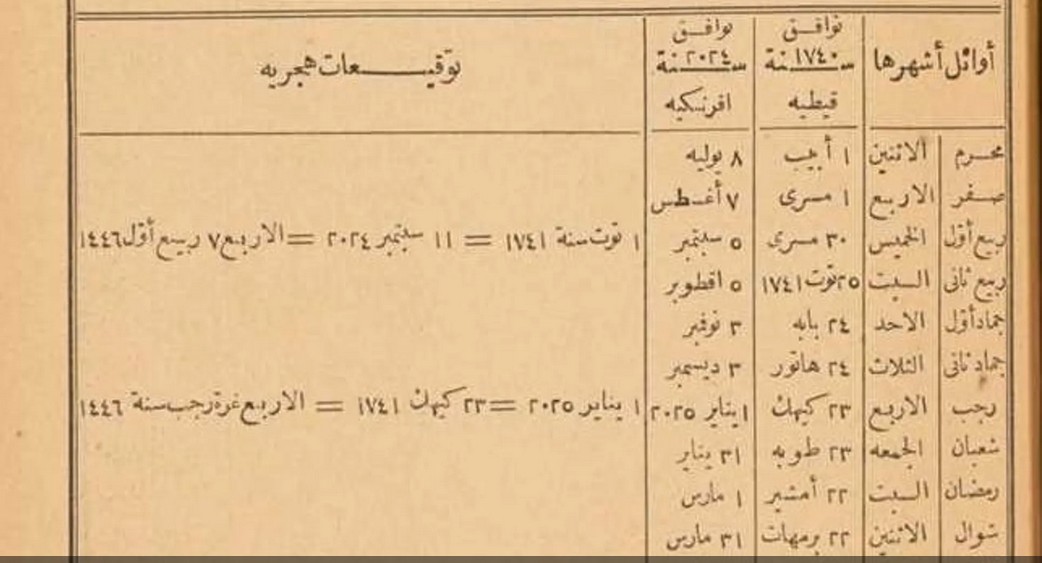 أوائل أشهرها | توافق سنة ١٧٤٠ قبطيه | توافق سنة ٢٠٢٤ افرنكيه | توقيعات هجريه
محرم | الاثنين | ١ أبيب | ٨ يوليه
صفر | الاربع | ١ مسرى | ٧ أغسطس
ربيع أوّل | الخميس | ٣٠ مسرى | ٥ سبتمبر | ١ توت سنة ١٧٤١ = ١١ سبتمبر ٢٠٢٤ = الاربع ٧ ربيع أوّل ١٤٤٦
ربيع ثانى | السبت | ٢٥ توت ١٧٤١ | ٥ اقطوبر
جماد أوّل | الاحد | ٢٤ بابه | ٣ نوفمبر
جماد ثانى | الثلاث | ٢٤ هاتور | ٣ ديسمبر
رجب | الاربع | ٢٣ كيهك | ١ يناير ٢٠٢٥ | ١ يناير ٢٠٢٥ = ٢٣ كيهك ١٧٤١ = الاربع غرة رجب سنة ١٤٤٦
شعبان | الجمعه | ٢٣ طوبه | ٣١ يناير
رمضان | السبت | ٢٢ أمشير | ١ مارس
شوال | الاثنين | ٢٢ برمهات | ٣١ مارس